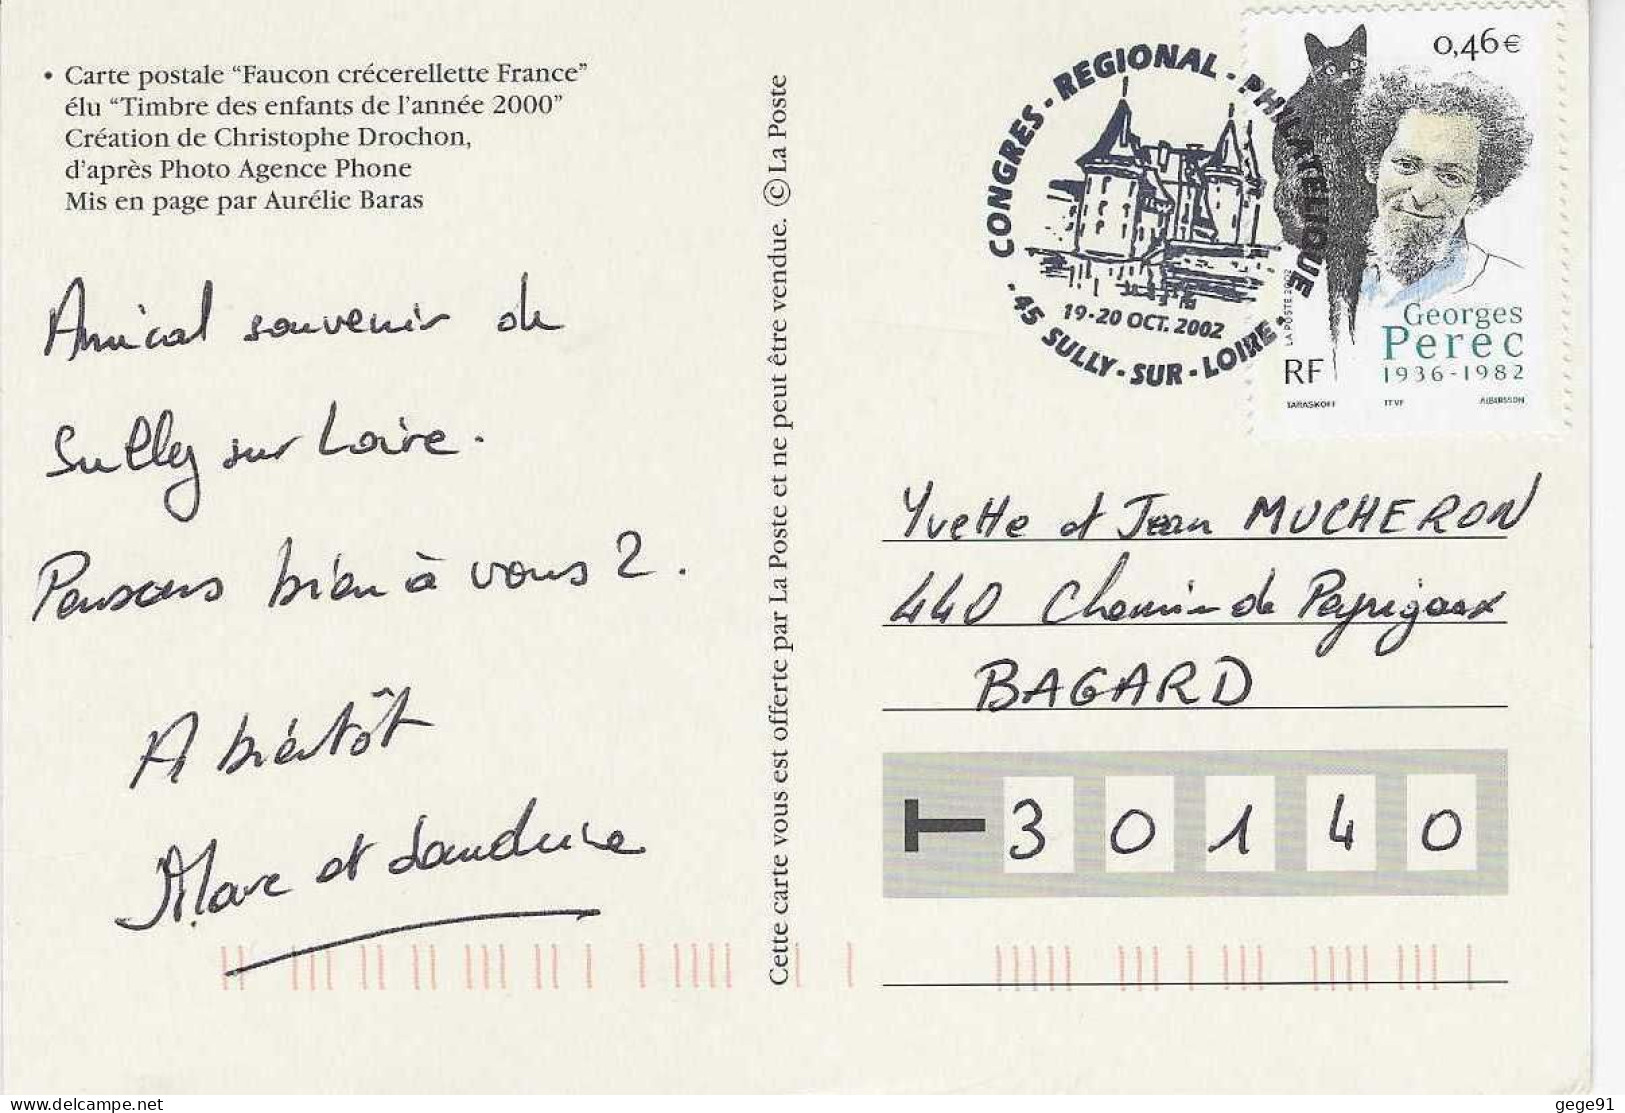 • Carte postale “Faucon crécerellette France”
élu “Timbre des enfants de l'année 2000”
Création de Christophe Drochon,
d'après Photo Agence Phone
Mis en page par Aurélie Baras
Amical souvenir de
Sully sur Loire.
Pensons bien à vous 2.
A bientôt
Marc et
Cette carte vous est offerte par La Poste et ne peut être vendue. © La Poste
CONGRES - REGIONAL - PHILATELIQUE
19-20 OCT. 2002
• 45 SULLY - SUR - LOIRE •
0,46€
LA POSTE 2002
Georges
Perec
1936-1982
RF
TARASKOFF ITVF ALBUISSON
Yvette et Jean MUCHERON
440 Chemin de
BAGARD
30140
gege91